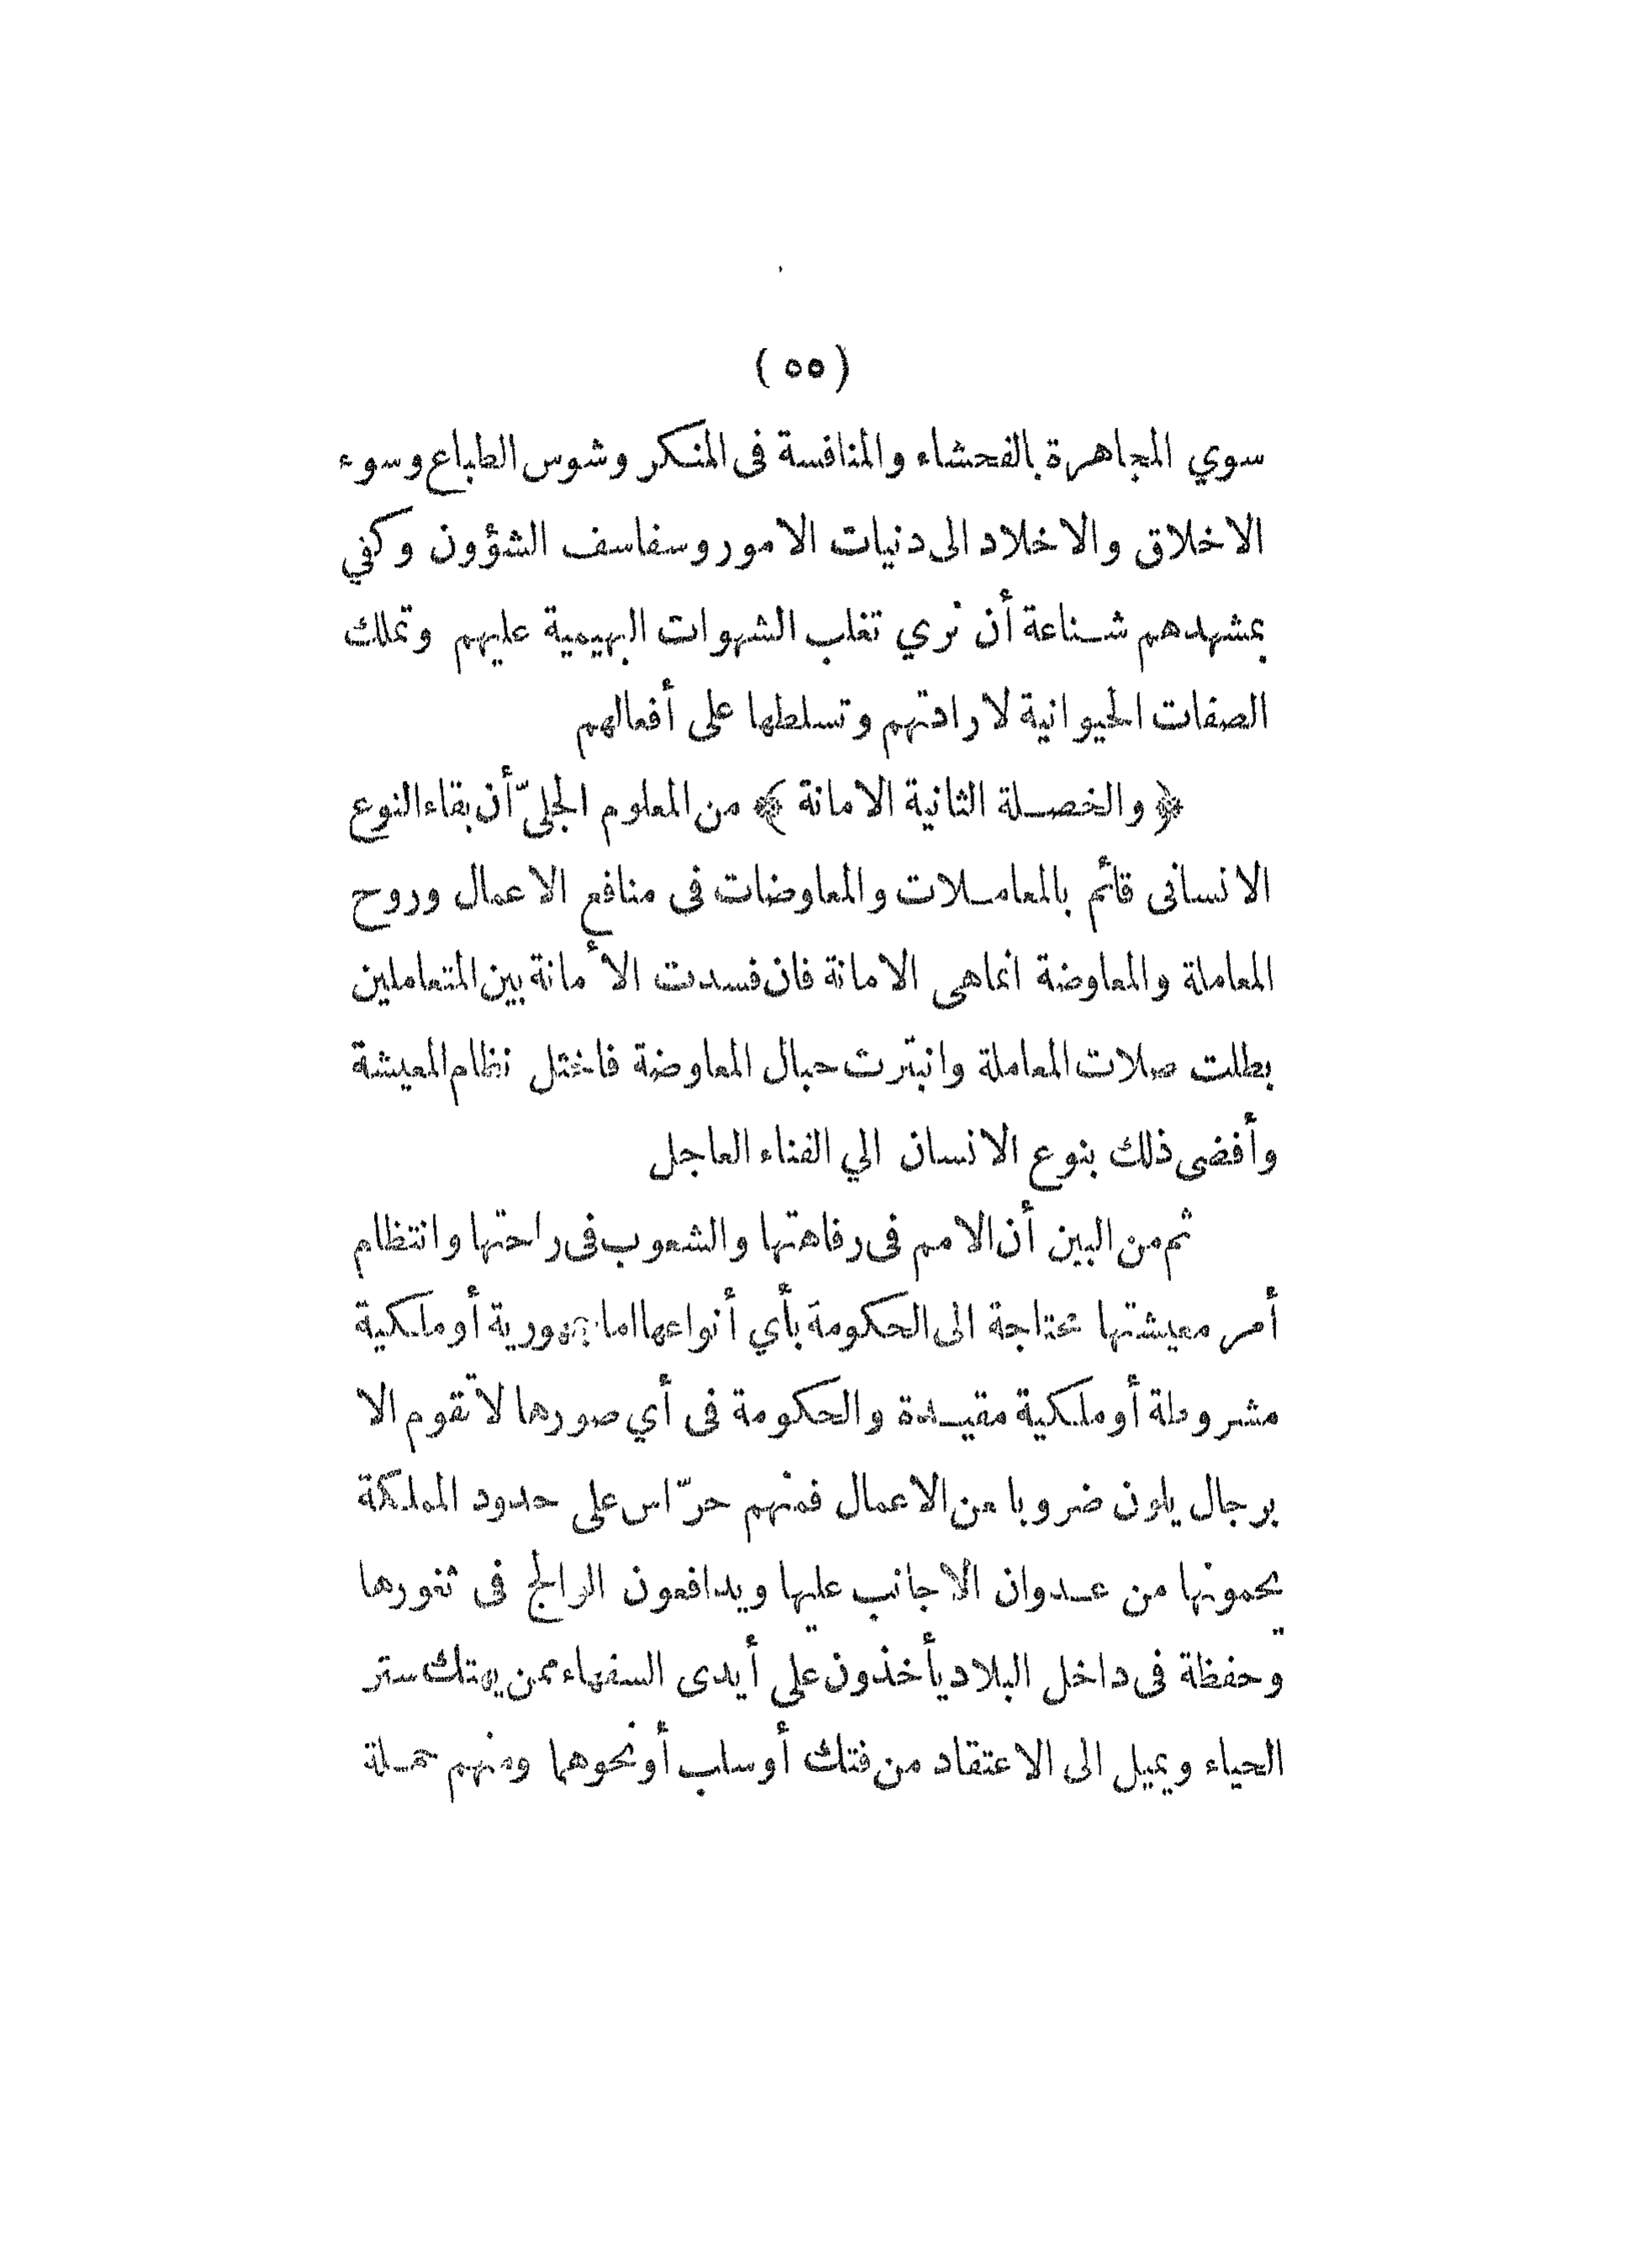 ( ٥٥ )
سوي المجاهرة بالفحشاء والمنافسة فى المنكر وشوس الطباع وسوء
الاخلاق والاخلاد الى دنيات الامور وسفاسف الشؤون وكفي
بمشهدهم شناعة أن نري تغلب الشهوات البهيمية عليهم وتملك
الصفات الحيوانية لارادتهم وتسلطها على أفعالهم
﴿ والخصلة الثانية الامانة ﴾ من المعلوم الجلىّ أن بقاء النوع
الانسانى قائم بالمعاملات والمعاوضات فى منافع الاعمال وروح
المعاملة والمعاوضة انماهى الامانة فان فسدت الأمانة بين المتعاملين
بطلت صلات المعاملة وانبترت حبال المعاوضة فاختل نظام المعيشة
وأفضى ذلك بنوع الانسان الي الفناء العاجل
ثم من البين أن الامم فى رفاهتها والشعوب فى راحتها وانتظام
أمر معيشتها محتاجة الى الحكومة بأي أنواعها اما جمهورية أو ملكية
مشروطة أو ملكية مقيدة والحكومة فى أي صورها لا تقوم الا
برجال يلون ضروبا من الاعمال فمنهم حرّاس على حدود المملكة
يحمونها من عدوان الاجانب عليها ويدافعون الوالج فى ثغورها
وحفظة فى داخل البلاد يأخذون على أيدى السفهاء ممن يهتك ستر
الحياء ويميل الى الاعتقاد من فتك أو سلب أو نحوهما ومنهم حملة